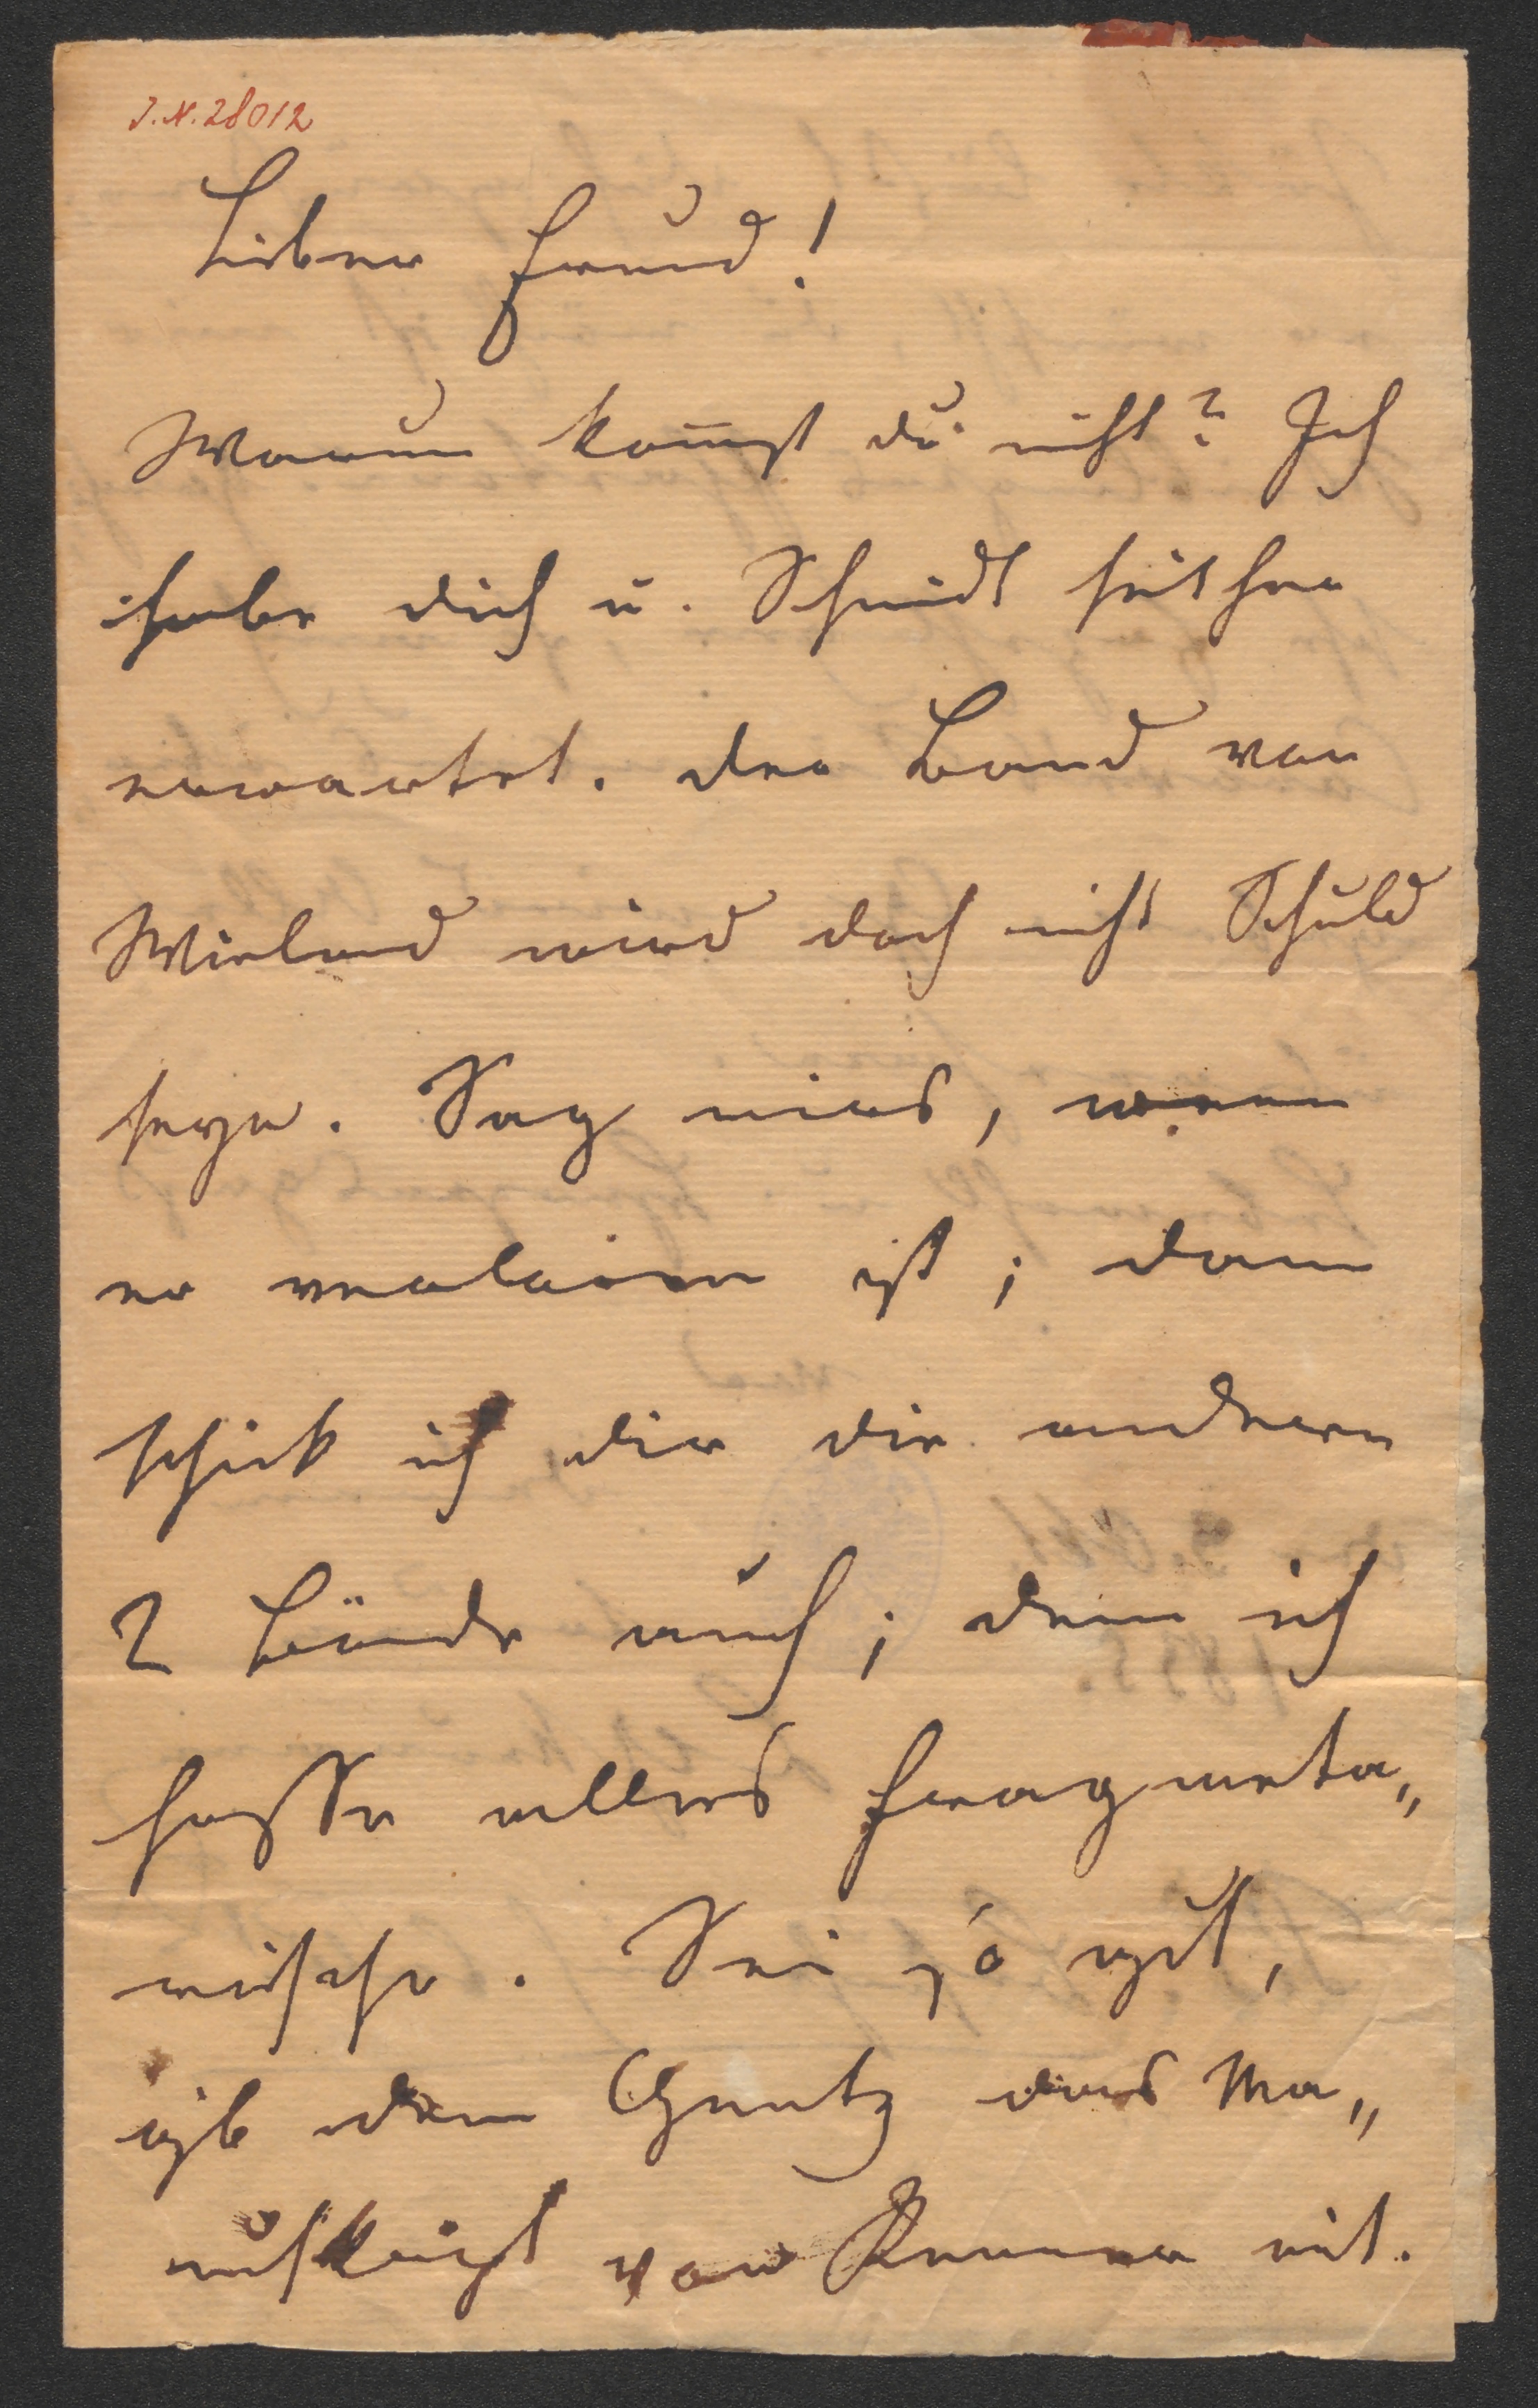 J.N. 28012
Lieber Freund!
Warum kom̄st du nicht? Ich
habe dich u. Schmidt seither
erwartet. Der Band von
Wieland wird doch nicht Schuld
seyn. Sag mirs, wenn
er verloren ist; dann
schick ich dir die anderen
2 Bände auch; denn ich
hasse alles Fragmenta„
rische. Sei so gut,
gib dem Gentz das Ma„
nuskript von mit.